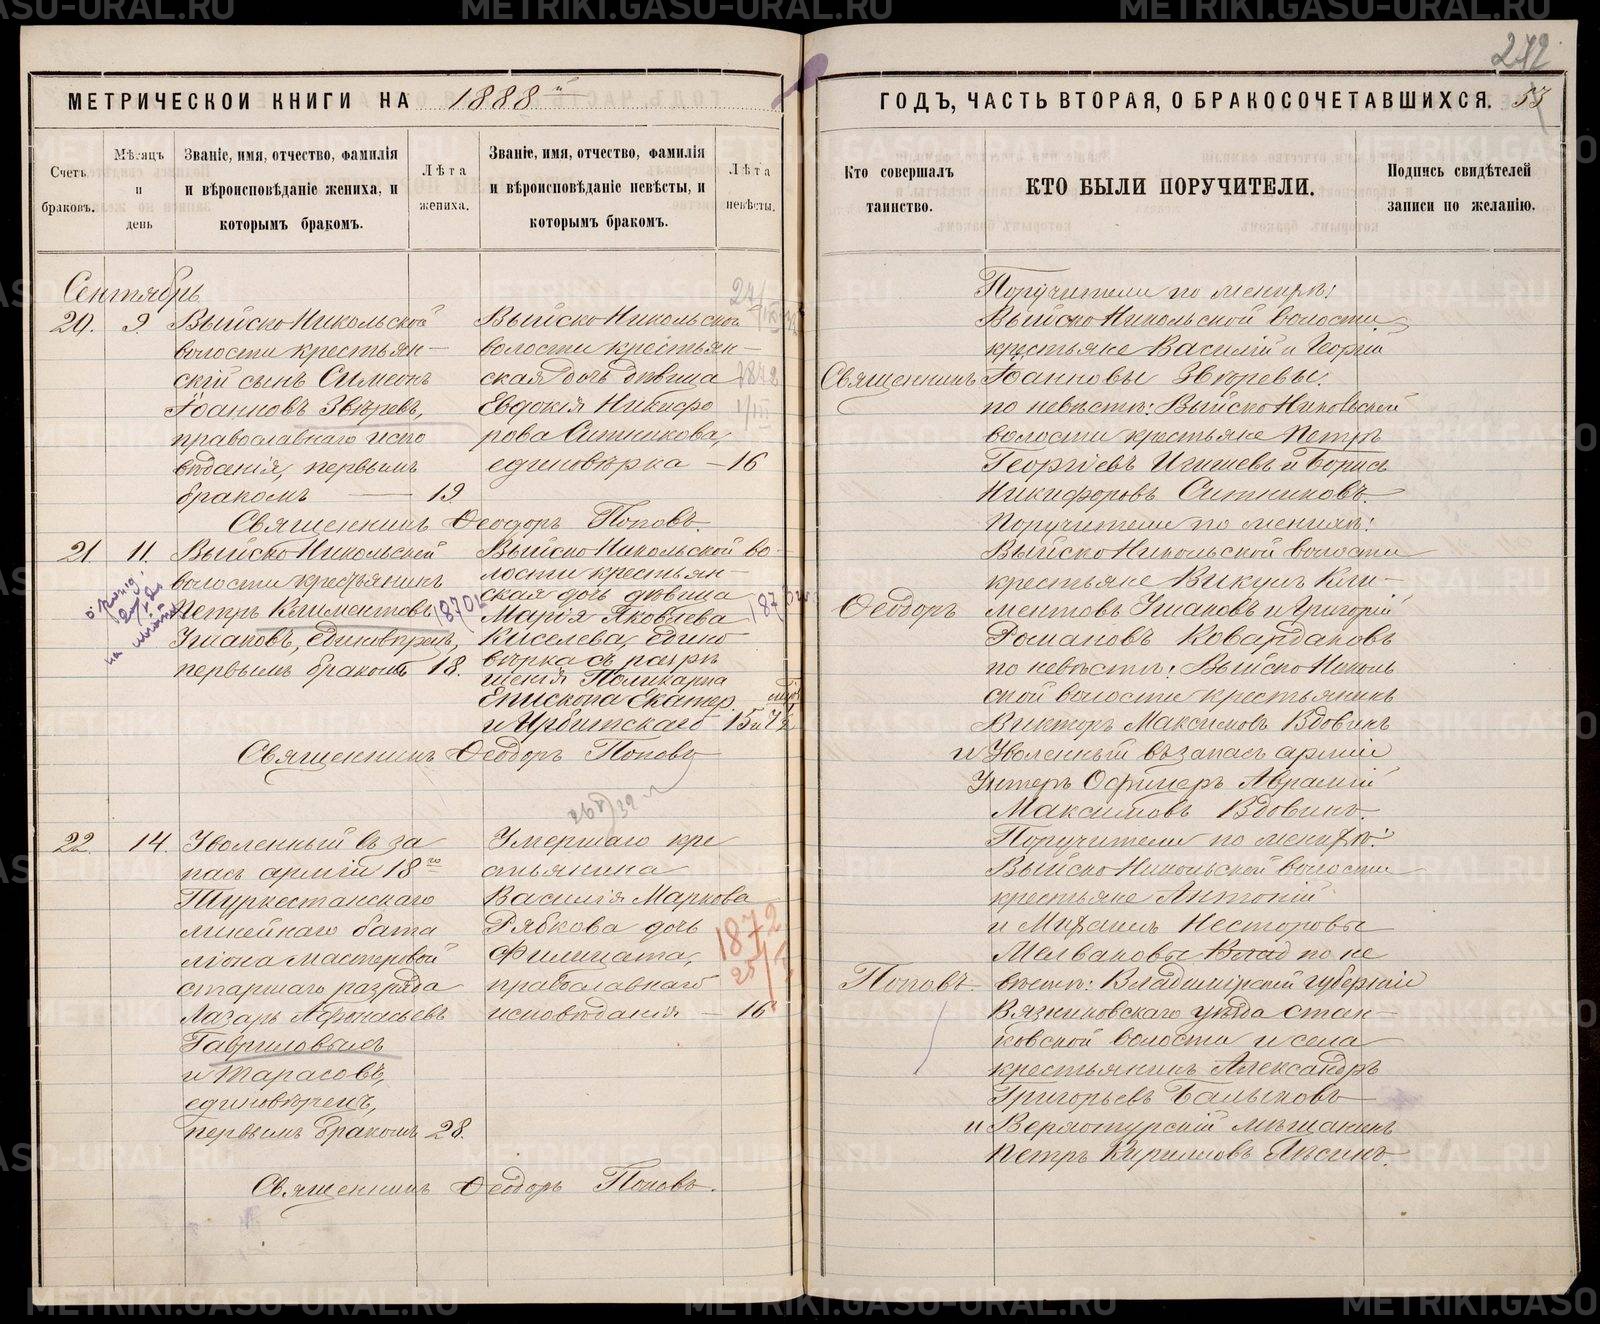 МЕТРИЧЕСКОЙ КНИГИ НА 1888 й
Счетъ браковъ.
Мѣсяцъ и день
Званіе, имя, отчество, фамилія
и вѣроисповѣданіе жениха, и
которымъ бракомъ.
Лѣта
жениха.
Званіе, имя, отчество, фамилія
и вѣроисповѣданіе невѣсты, и
которымъ бракомъ.
Лѣта
невѣсты.
Сентябрь
20. 9
Выйско Никольской
волости крестьян-
скій сынъ Симеонъ
Іоанновъ Звѣревъ,
православнаго испо
вѣданія, первымъ
бракомъ — 19
Выйско Никольской
волости крестьян-
ская дочь дѣвица
Евдокія Никифо
рова Ситникова,
единовѣрка — 16
Священникъ Ѳеодоръ Поповъ.
21. 11.
Выйско Никольской
волости крестьянинъ
Петръ Климентовъ 1870
Ушаковъ, единовѣрецъ,
первымъ бракомъ 18.
Выйско Никольской во-
лости крестьян-
ская дочь дѣвица
Марія Яковлева
Киселева, едино
вѣрка съ разрѣ
шенія Поликарпа
Епископа Екатер.
и Ирбитскаго 15 и
Священникъ Ѳеодоръ Поповъ
22. 14.
Уволенный въ за
пасъ арміи 18 го
Туркестанскаго
линейнаго бата
ліона мастеровой
старшаго разряда
Лазарь Афонасьевъ
Гавриловымъ
и Тарасовъ,
единовѣрецъ,
первымъ бракомъ 28.
Умершаго кре
стьянина
Василія Маркова
Рябкова дочь
Филицата,
православнаго
исповѣданія — 16
1872
25
Священникъ Ѳеодоръ Поповъ.
272
ГОДЪ, ЧАСТЬ ВТОРАЯ, О БРАКОСОЧЕТАВШИХСЯ. 53
Кто совершалъ
таинство.
КТО БЫЛИ ПОРУЧИТЕЛИ.
Подпись свидѣтелей
записи по желанію.
Священникъ
Ѳеодоръ
Поповъ.
Поручители по женихѣ:
Выйско Никольской волости
крестьяне Василій и Георгій
Іоанновы Звѣревы.
по невѣстѣ: Выйско Никольской
волости крестьяне Петръ
Георгіевъ и Борисъ
Никифоровъ Ситниковъ.
Поручители по женихѣ:
Выйско Никольской волости
крестьяне Викулъ Кли-
ментовъ Ушаковъ и Григорій
Романовъ Ковардаковъ
по невѣстѣ: Выйско Николь
ской волости крестьянинъ
Викторъ Максимовъ Вдовинъ
и Уволенный въ запасъ арміи
Унтеръ Офицеръ Аврамій
Максимовъ Вдовинъ.
Поручители по женихѣ:
Выйско Никольской волости
крестьяне Антоній
и Михаилъ Несторовы
по не
вѣстѣ: Владимірской губерніи
Вязниковскаго уѣзда Стан-
ковской волости и села
крестьянинъ Александръ
Григорьевъ Балыковъ
и Верхотурскій мѣщанинъ
Петръ Кириловъ Лѣсинъ.
METRIKI.GASO-URAL.RU